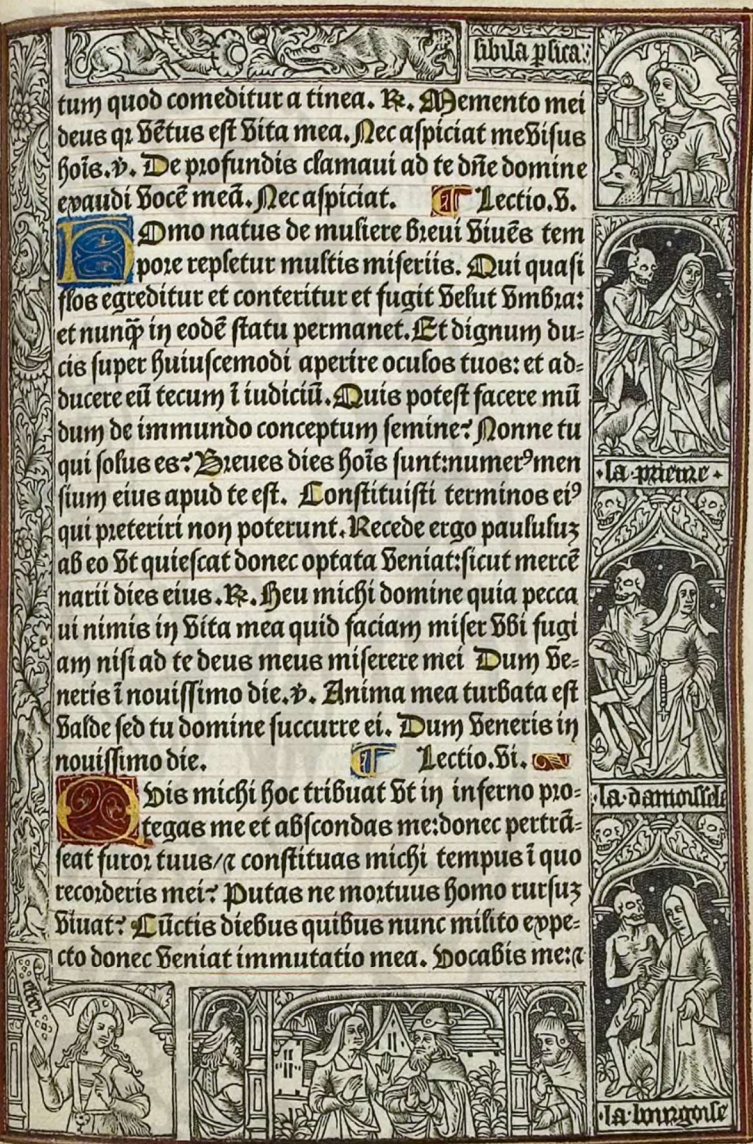 sibila psica:
tum quod comeditur a tinea. ℟. Memento mei
deus qꝛ vẽtus est vita mea. Nec aspiciat me visus
hoĩs. ℣. De profundis clamaui ad te dñe domine
exaudi vocẽ meã. Nec aspiciat. ¶ Lectio.v.
HOmo natus de muliere breui viuẽs tem
pore repletur multis miseriis. Qui quasi
flos egreditur et conteritur et fugit velut vmbra:
et nunqꝫ̃ in eodẽ statu permanet. Et dignum du=
cis super huiuscemodi aperire oculos tuos: et ad=
ducere eũ tecum ĩ iudiciũ. Quis potest facere mũ
dum de immundo conceptum semine? Nonne tu
qui solus es? Breues dies hoĩs sunt: numerꝰ men
sium eius apud te est. Constituisti terminos eiꝰ
qui preteriri non poterunt. Recede ergo paululuꝫ
ab eo vt quiescat donec optata veniat: sicut mercẽ
narii dies eius. ℟. Heu michi domine quia pecca
ui nimis in vita mea quid faciam miser vbi fugi
am nisi ad te deus meus miserere mei Dum ve=
neris ĩ nouissimo die. ℣. Anima mea turbata est
valde sed tu domine succurre ei. Dum veneris in
nouissimo die. ¶ Lectio.vi.
QVis michi hoc tribuat vt in inferno pro=
tegas me et abscondas me: donec pertrã=
seat furor tuus/⁊ constituas michi tempus ĩ quo
recorderis mei? Putas ne mortuus homo rursuꝫ
viuat? Cũctis diebus quibus nunc milito expe=
cto donec veniat immutatio mea. Vocabis me: ⁊
·la prieure·
·la damoiselle
·la bourgoise